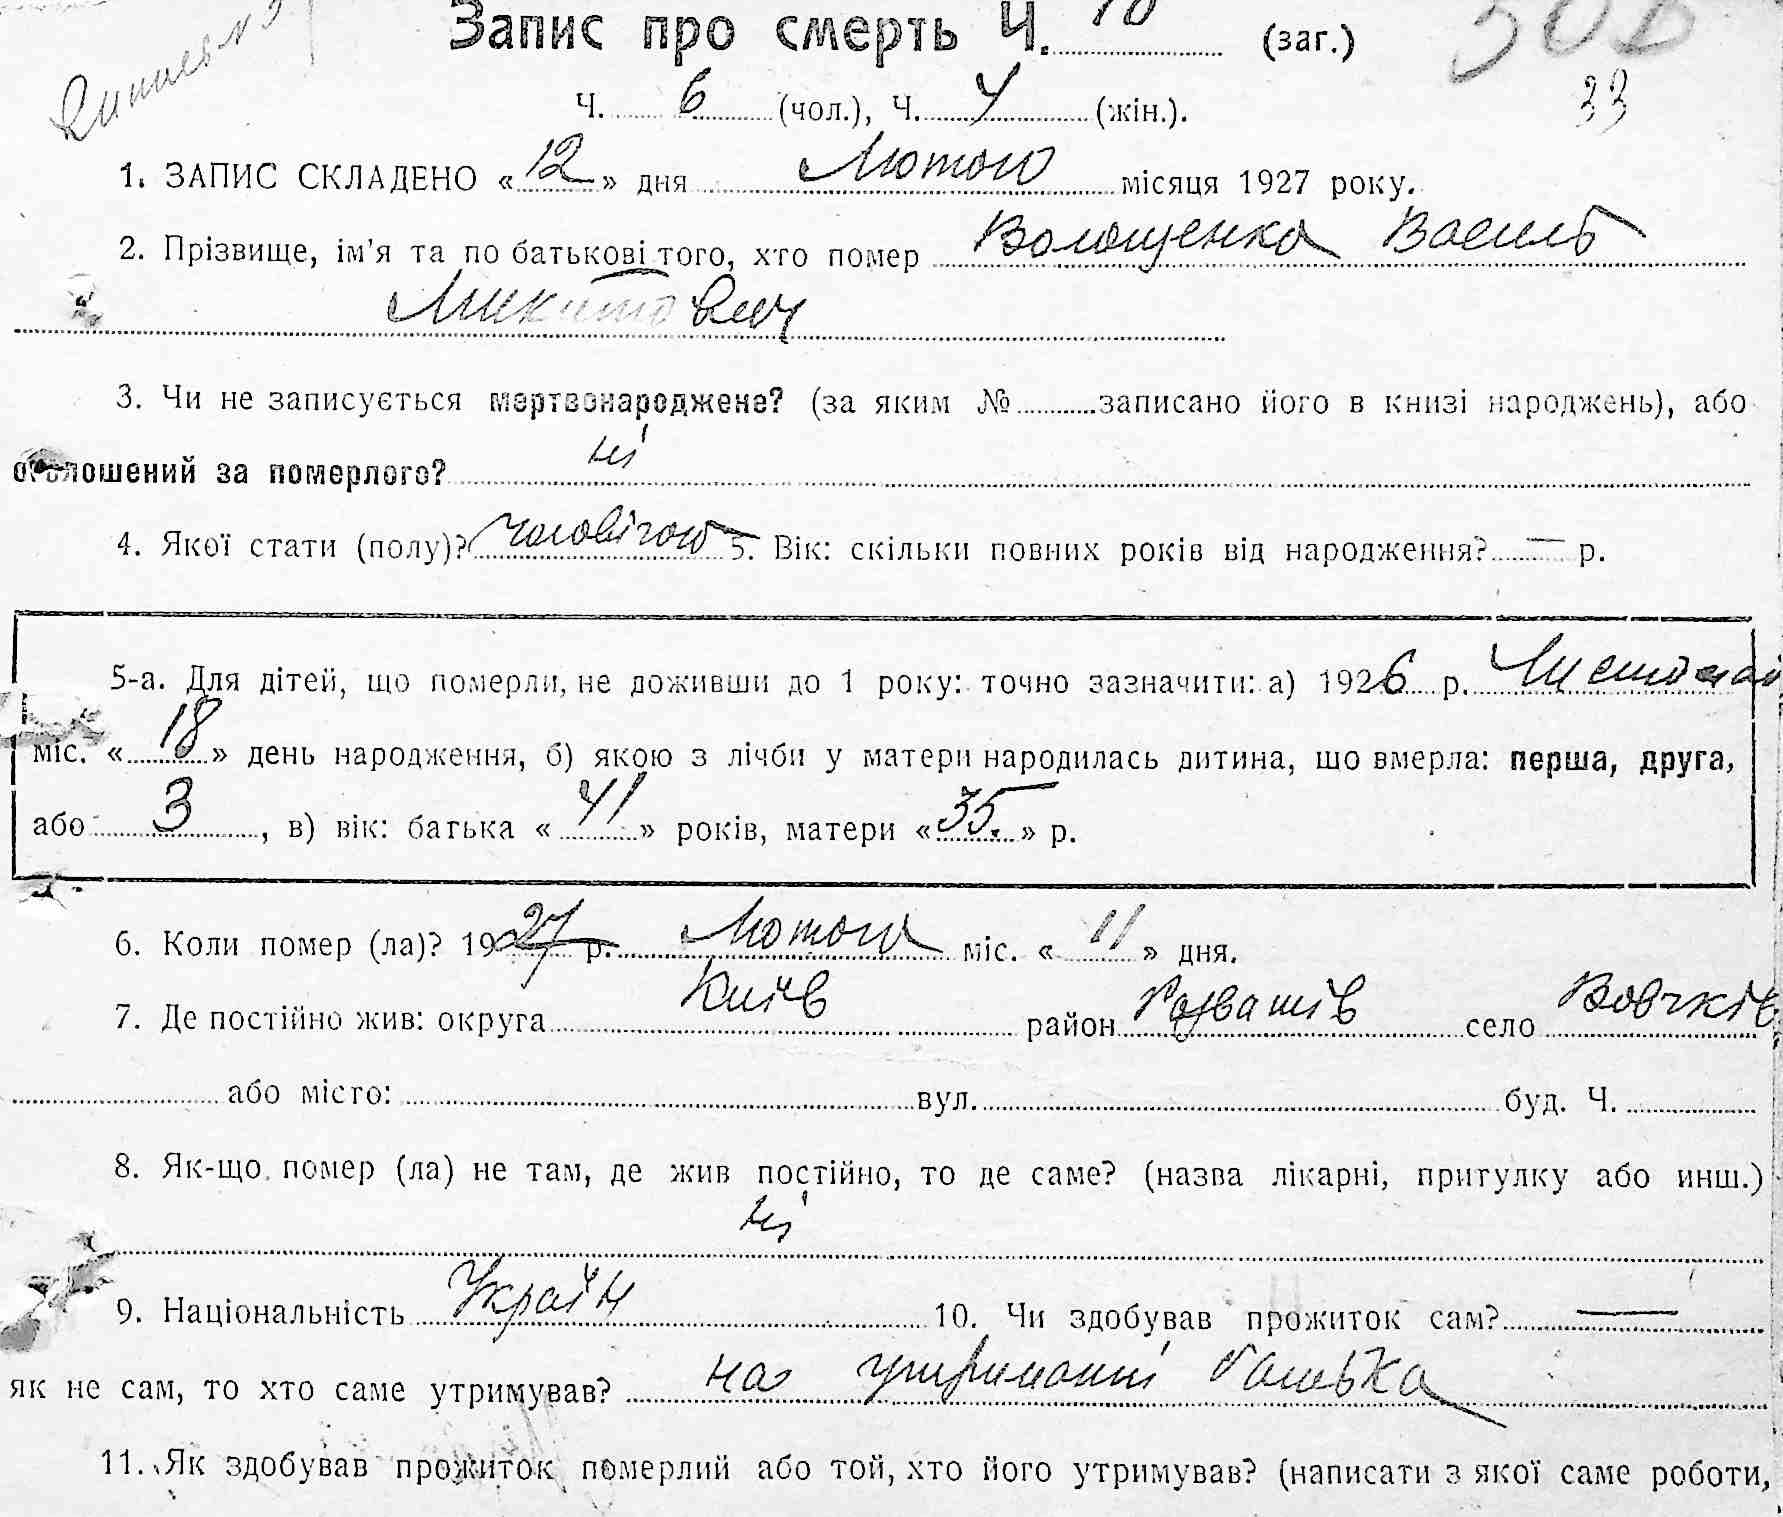 Запис про смерть Ч. 10 (заг.)
33
Ч. 6 (чол.), Ч. 4 (жін.).
1. ЗАПИС СКЛАДЕНО «12» дня Лютого місяця 1927 року.
2. Прізвище, ім'я та по батькові того, хто помер Волощенко Василь
Микитович
3. Чи не записується мертвонароджене? (за яким № записано його в книзі народжень), або
оголошений за померлого? ні
4. Якої стати (полу)? чоловічої 5. Вік: скільки повних років від народження? — р.
5-а. Для дітей, що померли, не доживши до 1 року: точно зазначити: а) 1926 р. Листопад
міс. «18» день народження, б) якою з лічби у матери народилась дитина, що вмерла: перша, друга,
або 3, в) вік: батька «41» років, матери «35.» р.
6. Коли помер (ла)? 1927 р. Лютого міс. «11» дня.
7. Де постійно жив: округа Київ район Розважів село Вовчків
або місто: вул. буд. Ч.
8. Як-що помер (ла) не там, де жив постійно, то де саме? (назва лікарні, притулку або инш.)
ні
9. Національність Україн 10. Чи здобував прожиток сам? —
як не сам, то хто саме утримував? на утриманні батька
11. Як здобував прожиток померлий або той, хто його утримував? (написати з якої саме роботи,